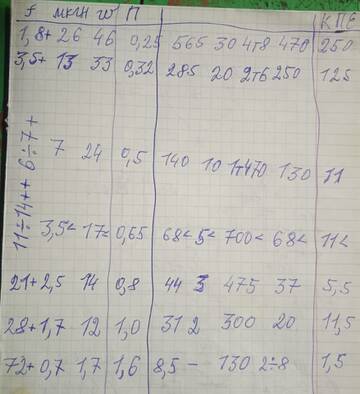 f мкГн W П КПЕ
1,8+ 26 46 0,25 565 30 4т8 470 250
3,5+ 13 33 0,32 285 20 2т6 250 125
6÷7+ 7 24 0,5 140 10 1т470 130 11
11÷14++ 3,5< 17< 0,65 68< 5< 700< 68< 11<
21+ 2,5 14 0,8 44 3 475 37 5,5
28+ 1,7 12 1,0 31 2 300 20 11,5
72+ 0,7 1,7 1,6 8,5 – 130 2÷8 1,5